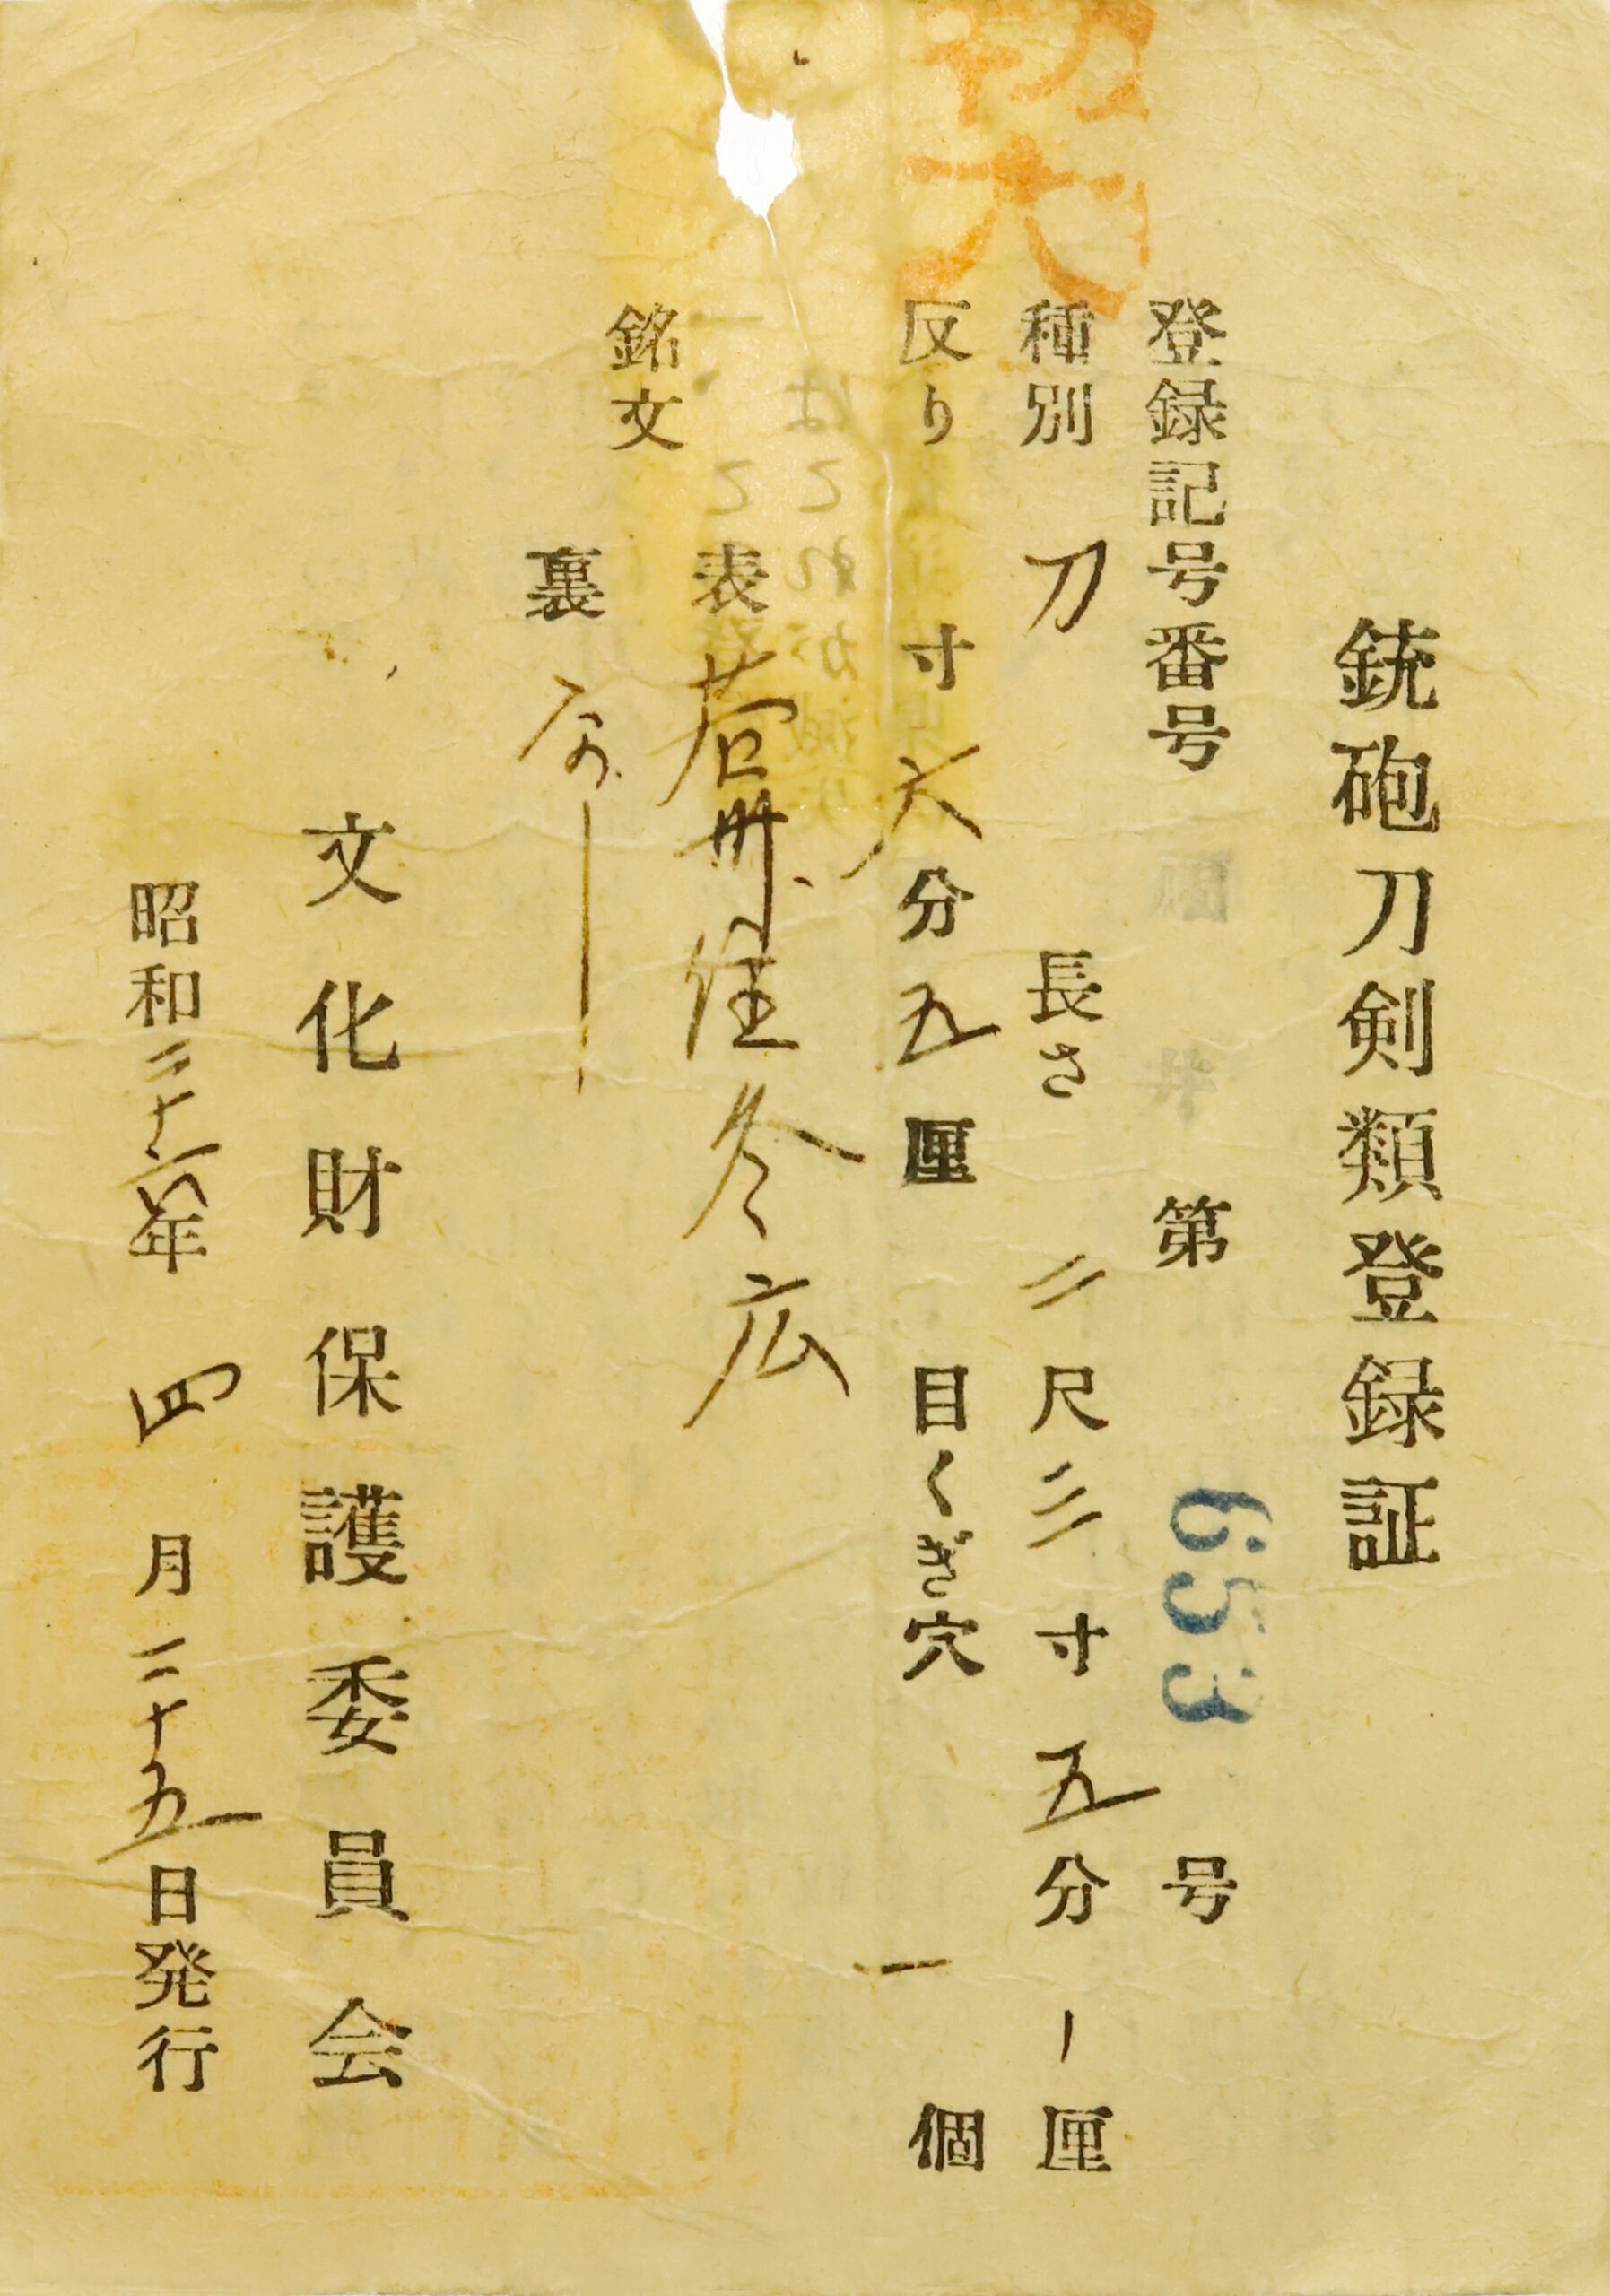 銃砲刀剣類登録証
登録記号番号 第 653 号
種別 刀 長さ 二尺三寸五分 厘
反り 寸六分五厘 目くぎ穴 一個
銘文
表 若州住冬広
裏
文化財保護委員会
昭和二十六年四月二十五日発行